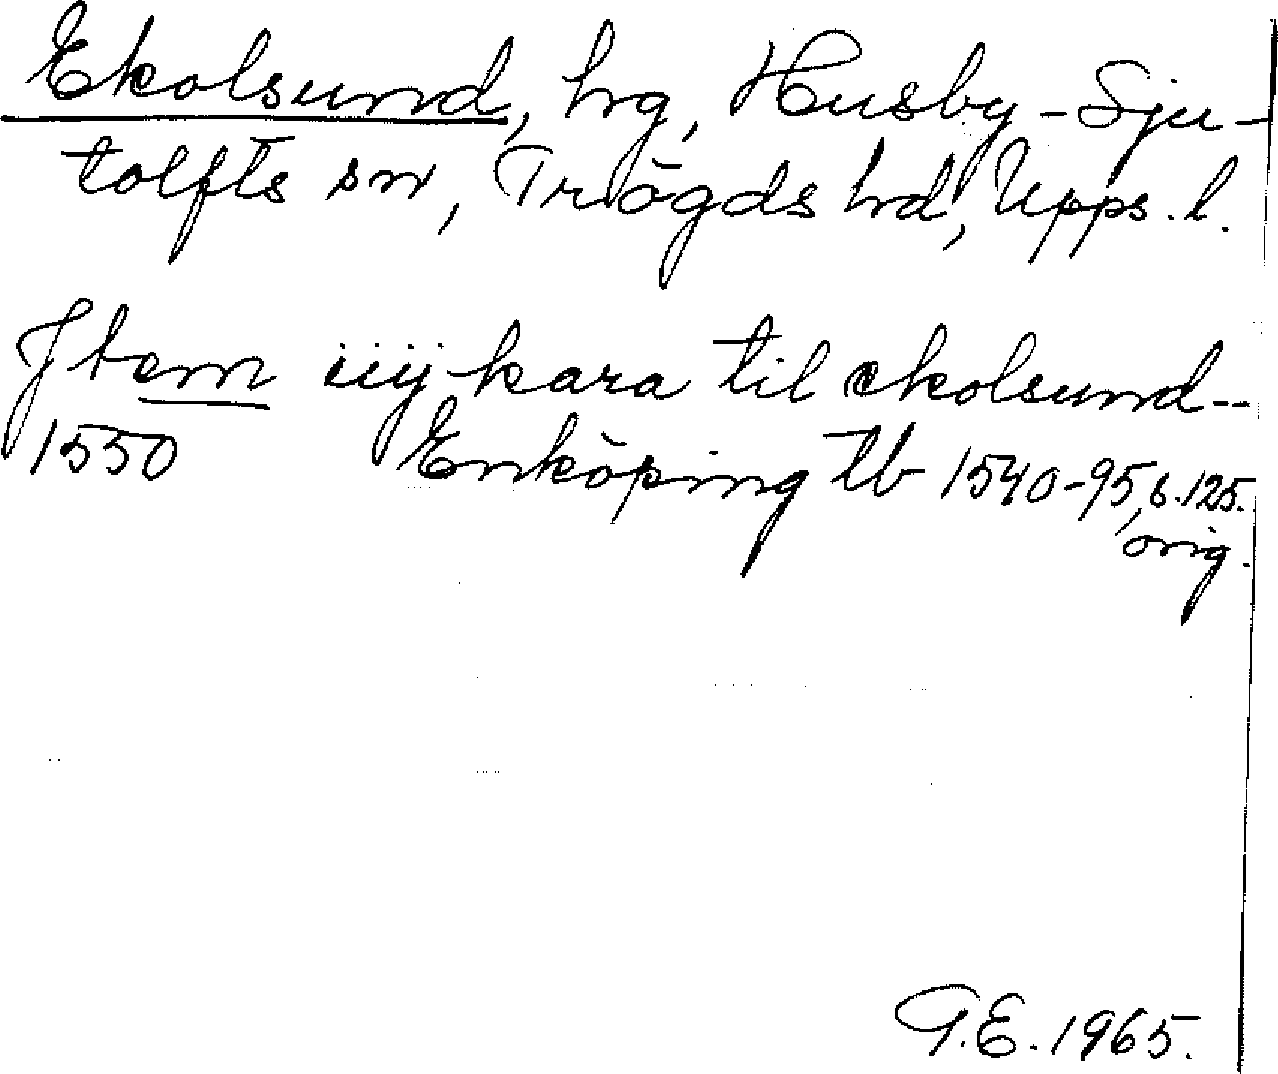 Ekolsund, hrg, Husby-Sju-
tolfts sn, Trögds hd, Upps. l.
Jtem iiij kara til ekolsund--
1550 Enköping tb 1540-95, s. 125.
orig.
G.E. 1965.